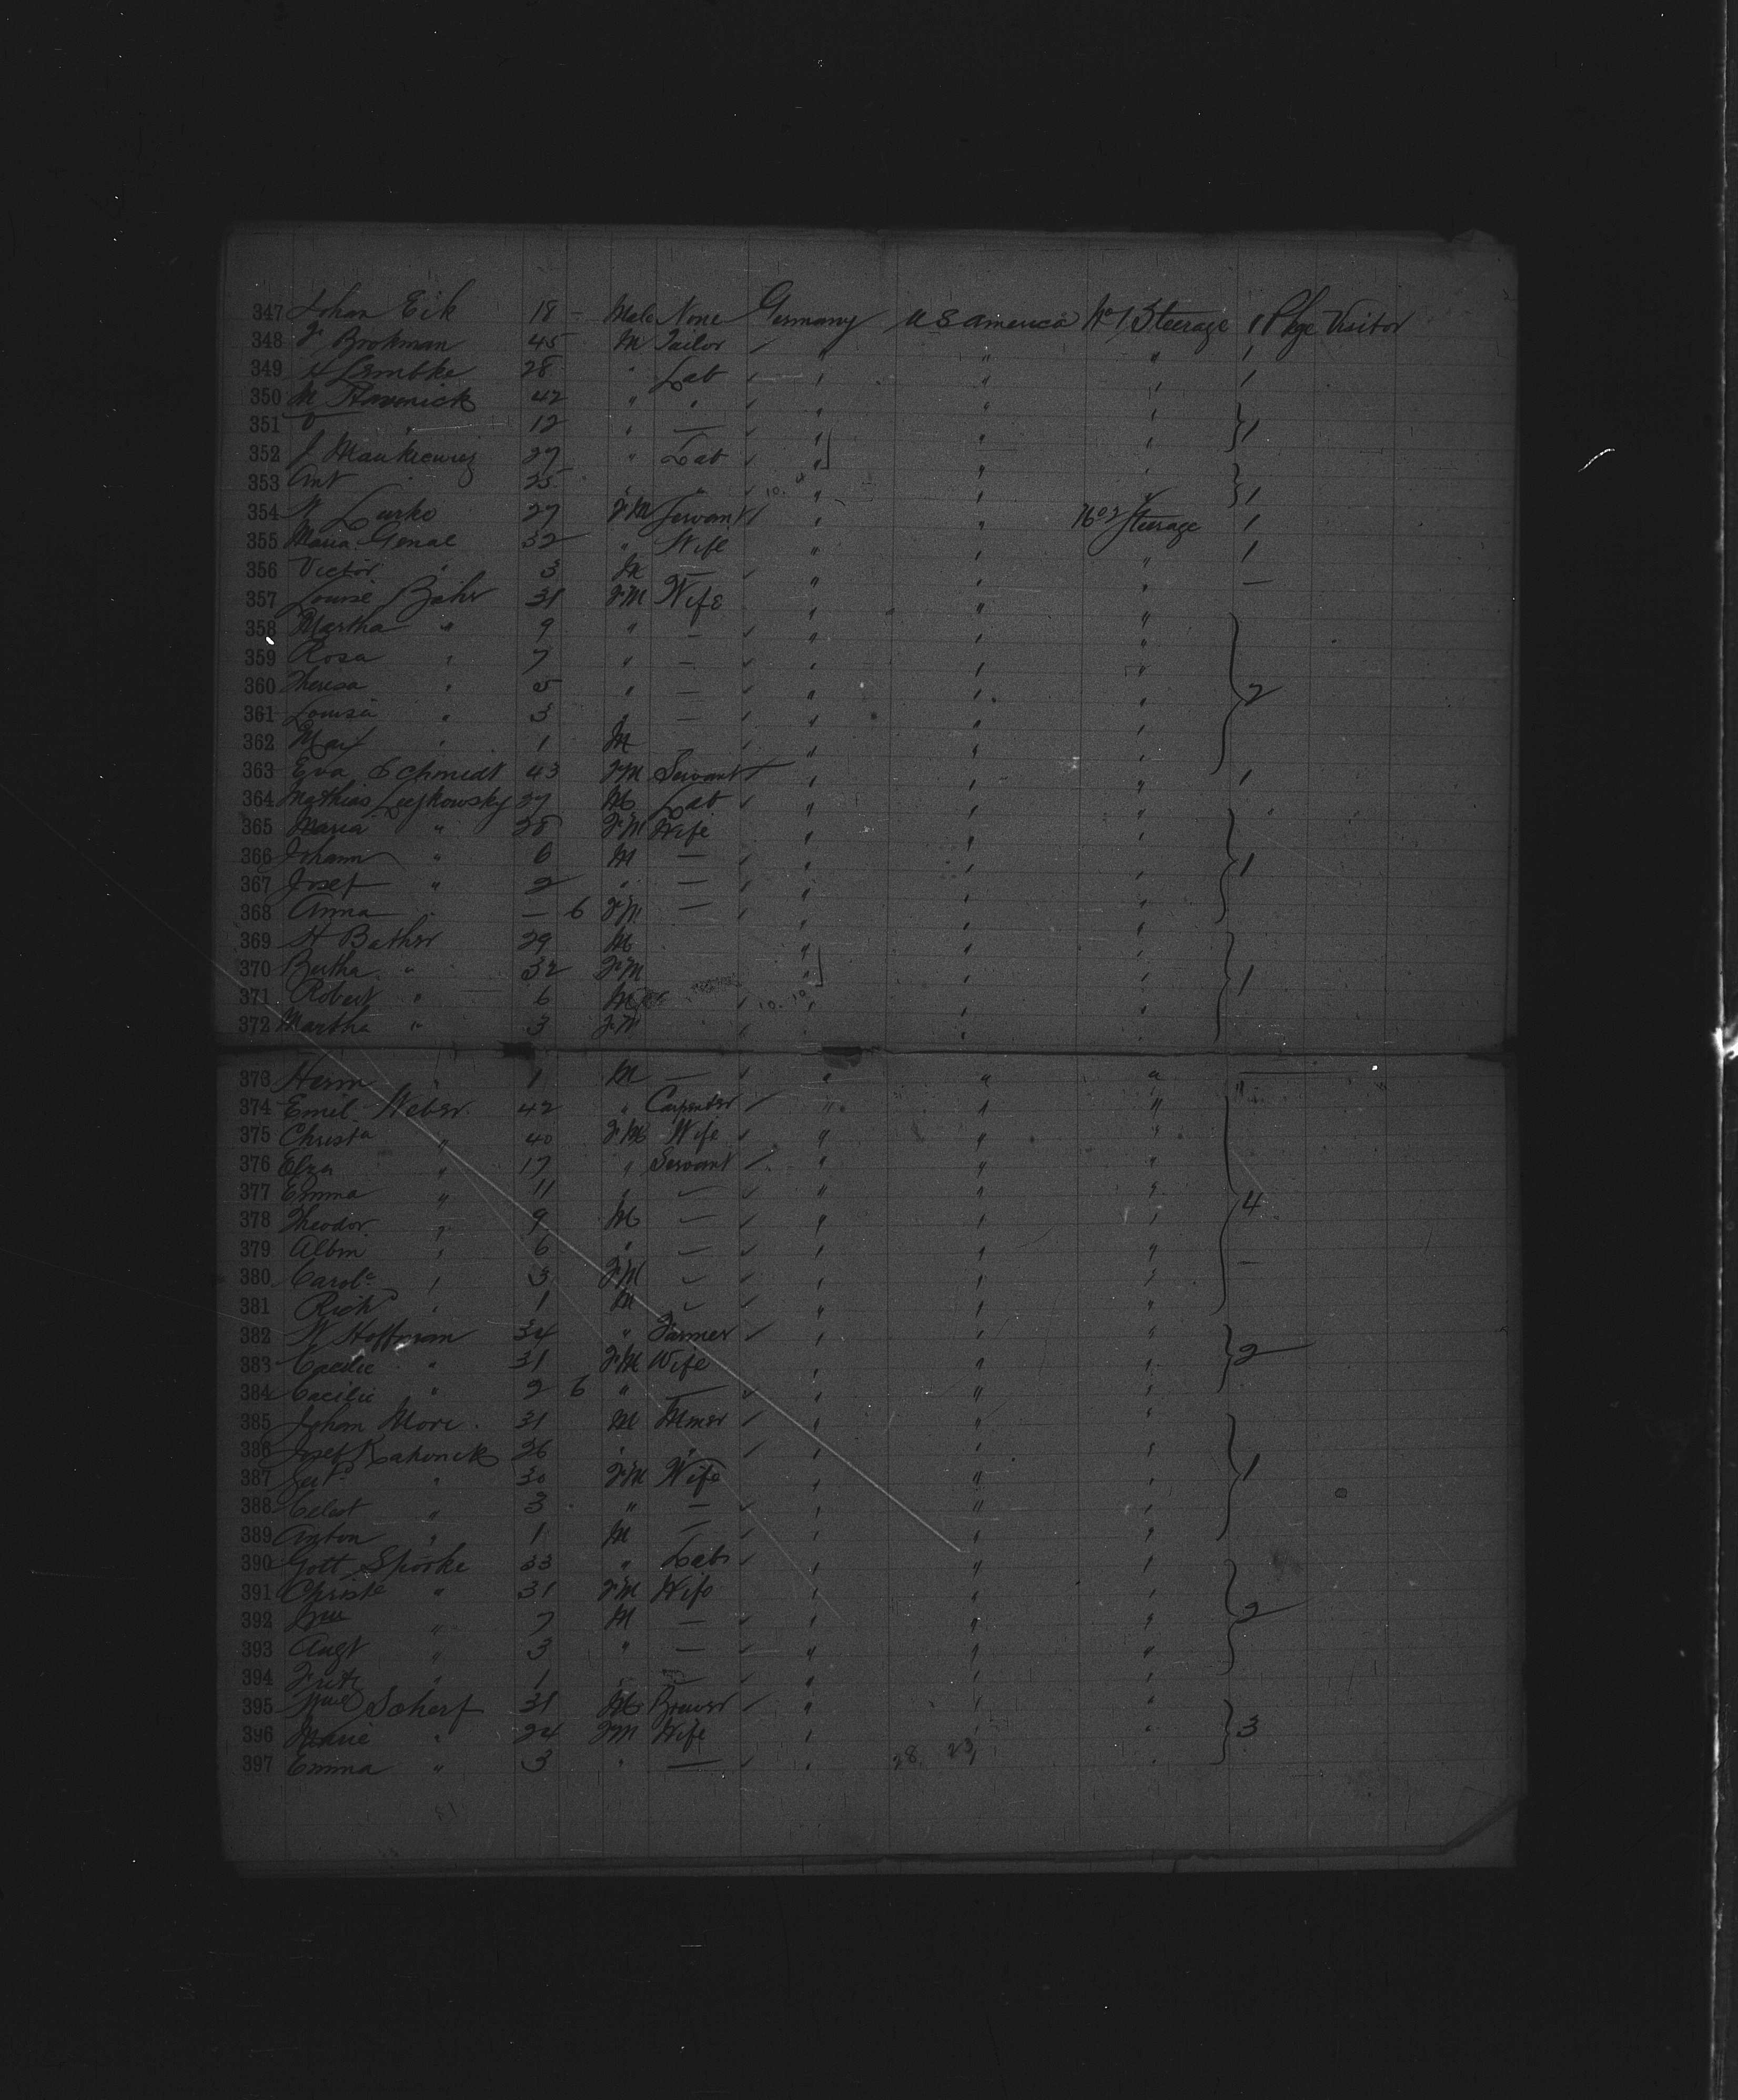 347 Johan Eik 18 - Male None Germany U S america No 1 Steerage 1 Pkge Visitor
348 Fr Brokman 45 M Tailor ✓ " " " 1
349 H Lembke 28 " Lab ✓ " " " 1
350 M 42 " " ✓ " " "
351 " 12 " — ✓ " " " } 1
352 J Mankiewiez 27 " Lab ✓ " " "
353 Ant " 25 " " ✓ 10. " " " } 1
354 27 FM Servant ✓ " " No 2 Steerage 1
355 Maria Genal 32 " Wife " " " 1
356 Victor " 3 M — ✓ " " " —
357 Louise Bähr 31 FM Wife " " "
358 Martha " 9 " — ✓ " " "
359 Rosa " 7 " — ✓ " " "
360 Theresa " 5 " — ✓ " " " } 2
361 Louisa " 3 " — ✓ " " "
362 Max " 1 M — ✓ " " "
363 Eva Schmidt 43 FM Servant ✓ " " " 1
364 Mathias 37 M Lab ✓ " " "
365 Maria " 28 FM Wife " " "
366 Johann " 6 M — ✓ " " " } 1
367 Josef " 2 " — ✓ " " "
368 Anna " — 6 FM — ✓ " " "
369 H Bather 29 M " " "
370 Bertha " 32 FM " " " } 1
371 Robert " 6 M ✓ 10. 10 " " "
372 Martha " 3 FM " " " "
373 Herm " 1 M — ✓ " " " —
374 Emil Weber 42 " Carpenter ✓ " " "
375 Christa " 40 FM Wife ✓ " " "
376 Elza " 17 " Servant ✓ " " "
377 Emma " 11 " — ✓ " " " } 4
378 Theodor " 9 M — ✓ " " "
379 Albin " 6 " — ✓ " " " —
380 Carole " 3 FM — ✓ " " "
381 Richd " 1 M — ✓ " " "
382 W Hoffman 34 " Farmer ✓ " " " } 2
383 Cacilie " 31 FM Wife " " "
384 Cacilie " 2 6 " — ✓ " " "
385 Johan Mori 31 M ✓ " " "
386 Josef 26 " " ✓ " " "
387 " 30 FM Wife " " " } 1
388 Celest " 3 " — ✓ " " "
389 Anton " 1 M — ✓ " " "
390 Gott Spörke 33 " Labr ✓ " " "
391 Christe " 31 FM Wife " " " } 2
392 " 7 M — ✓ " " "
393 Augt " 3 " — ✓ " " "
394 " 1 " — ✓ " " "
395 Scherf 31 M Brewer ✓ " " "
396 Marie " 24 FM Wife " " " } 3
397 Emma " 3 " — ✓ " 28 23 " "